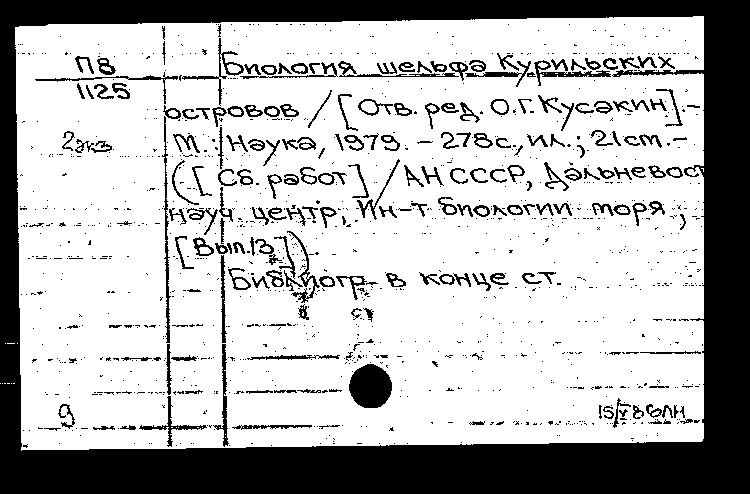 П8 Биология шельфа Курильских
1125
островов / [Отв. ред. О.Г. Кусакин].-
2экз. М.: Наука, 1979. – 278с., ил.; 21 ст.-
([Сб. работ] / АН СССР, Дальневост
науч. центр, Ин-т биологии моря;
[Вып./3]).
Библиогр. в конце ст.
9